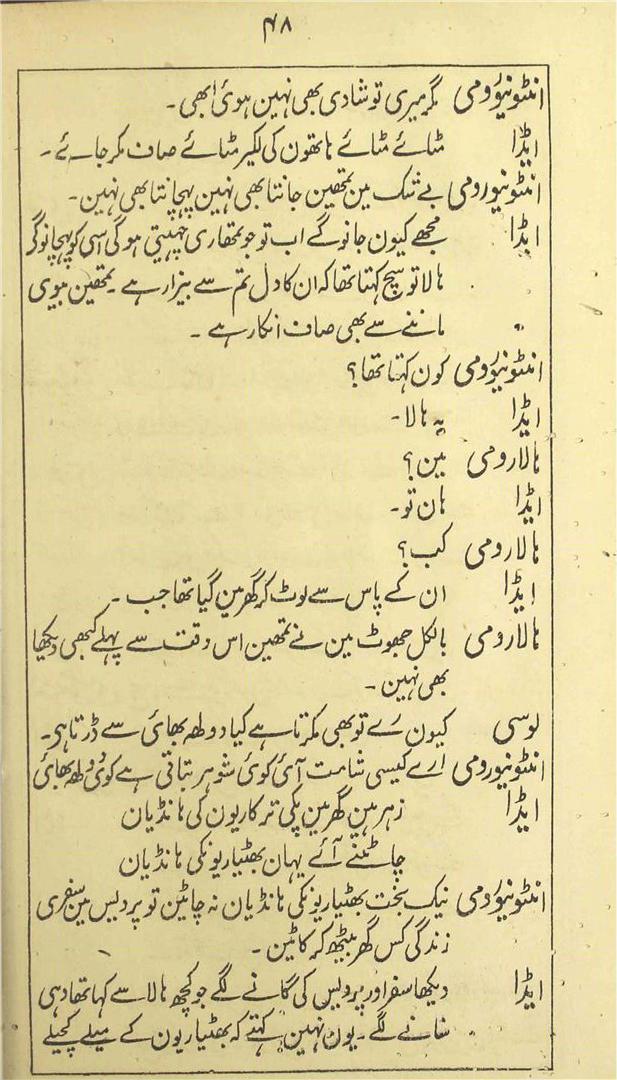 ۴۸
انٹونیورومی مگر میری تو شادی بھی نہین ہوئی ابھی۔
ایڈا مٹائے مٹائے ہاتھون کی لکیر مٹائے صاف مکر جائے۔
انٹونیورومی بے شک مین تمھین جانتا بھی نہین پہچانتا بھی نہین۔
ایڈا مجھے کیون جانوگے اب تو جو تمھاری چہیتی ہوگی اسی کو پہچانوگے
ہالا تو سچ کہتا تھا کہ ان کا دل تم سے بیزار ہے۔ تمھین بیوی
ماننے سے بھی صاف انکار ہے۔
انٹونیورومی کون کہتا تھا؟
ایڈا یہ ہالا۔
ہالارومی مین؟
ایڈا ہان تو۔
ہالارومی کب؟
ایڈا ان کے پاس سے لوٹ کر گھر مین گیا تھا جب۔
ہالارومی بالکل جھوٹ مین نے تمھین اس وقت سے پہلے کبھی دیکھا
بھی نہین۔
لوسی کیون رے تو بھی مکرتا ہے کیا دولھ بھائی سے ڈرتا ہی۔
انٹونیورومی ارے کیسی شامت آئی کوئی شوہر بتاتی ہے کوئی دولھ بھائی
ایڈا زہر مین گھر مین پکی ترکاریون کی ہانڈیان
چاٹنے آئے یہان بھٹیاریونکی ہانڈیان
انٹونیورومی نیک بخت بھٹیاریونکی ہانڈیان نہ چاٹین تو پردیس مین سفری
زندگی کس گھر بیٹھ کر کاٹین۔
ایڈا دیکھا سفر اور پردیس کی گانے لگے جو کچھ ہالا سے کہا تھا وہی
سنانے لگے۔ یون نہین کہتے کہ بھٹیاریون کے میلے کچیلے